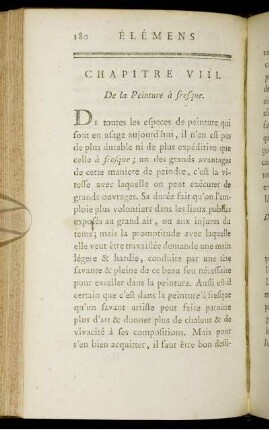 180 ÉLÉMENS
CHAPITRE VIII.
De la Peinture à fresque.
DE toutes les especes de peinture qui
sont en usage aujourd'hui, il n'en est pas
de plus durable ni de plus expéditive que
celle à fresque ; un des grands avantages
de cette maniere de peindre, c'est la vi-
tesse avec laquelle on peut exécuter de
grands ouvrages. Sa durée fait qu'on l'em-
ploie plus volontiers dans les lieux publics
exposés au grand air, ou aux injures du
tems ; mais la promptitude avec laquelle
elle veut être travaillée demande une main
légere & hardie, conduite par une tête
savante & pleine de ce beau feu nécessaire
pour exceller dans la peinture. Aussi est-il
certain que c'est dans la peinture à fresque
qu'un savant artiste peut faire paroître
plus d'art & donner plus de chaleur & de
vivacité à ses compositions. Mais pour
s'en bien acquitter, il faut être bon dessi-